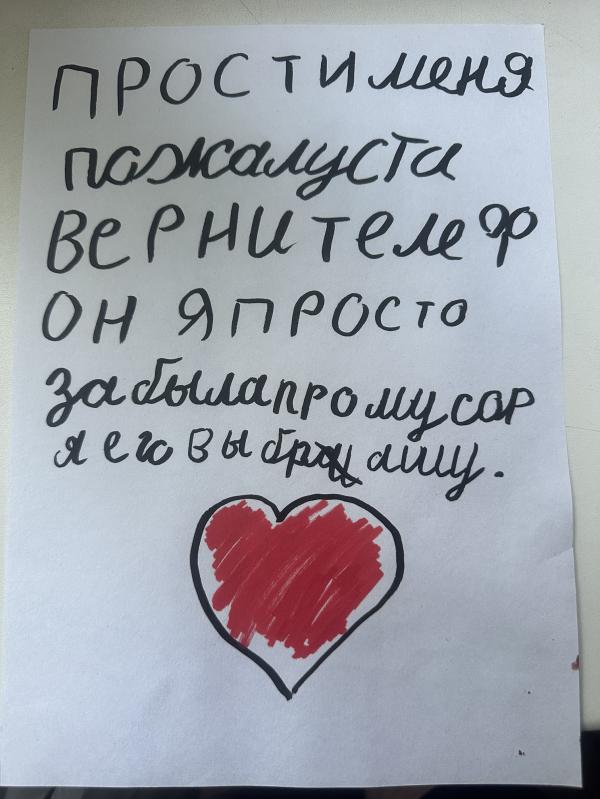 ПРОСТИ меня
пожалуста
ВеРНИ телеф
ОН Я ПРОСТО
забыла про мусор
я его выбр ашу.